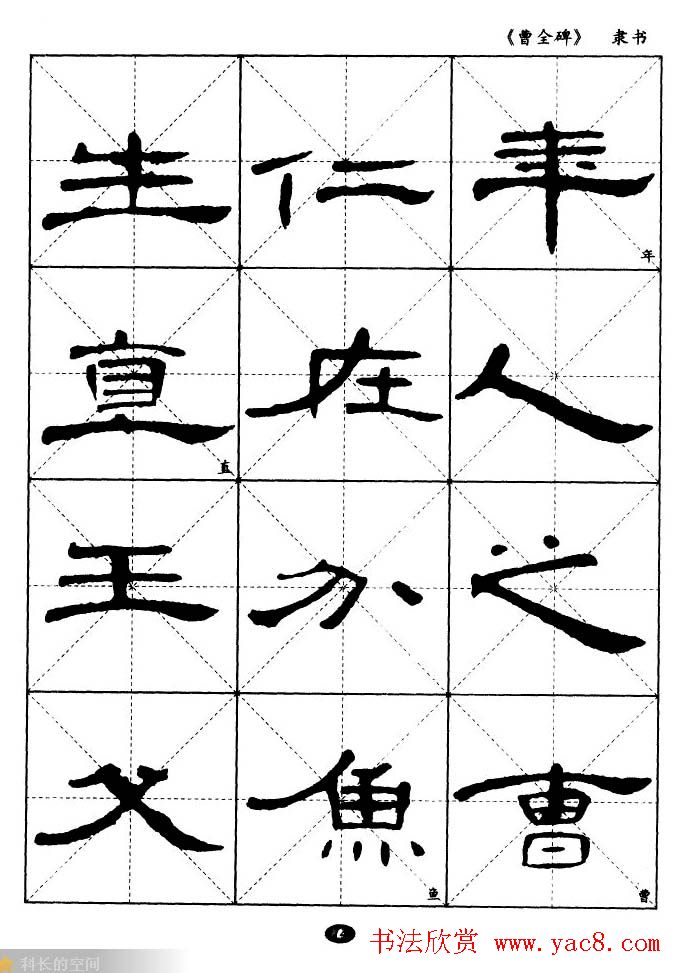 《曹全碑》 隶书
年人之曹
年
曹
仁在魚
鱼
生直王父
直
书法欣赏 www.yac8.com
科长的空间